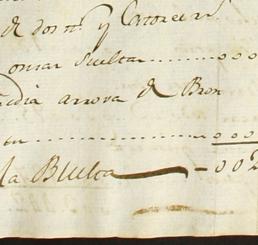 de dos rs. y Catorce rs.
onzas sueltas..........000
dia arrova de Bron
..........000
la Buelta — 002